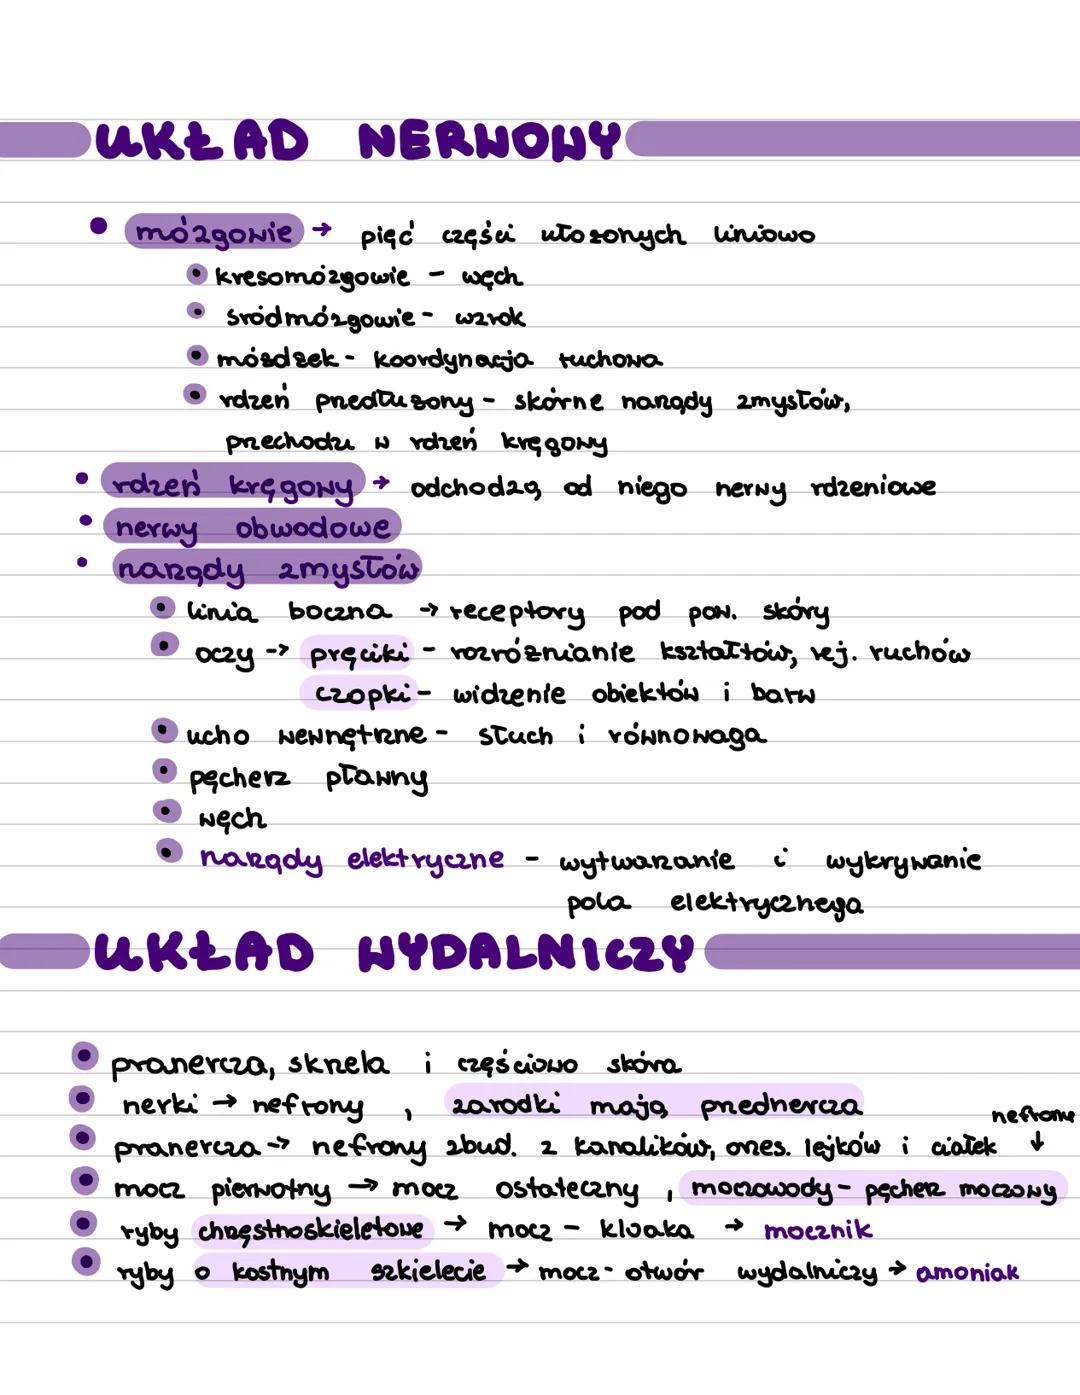 UKŁAD NERWOWY
mózgowie → pięć części ułożonych liniowo
kresomózgowie - węch
śródmózgowie - wzrok
móżdżek - koordynacja ruchowa
rdzeń przedłużony - skórne narządy zmysłów,
przechodzi w rdzeń kręgowy
rdzeń kręgowy → odchodzą od niego nerwy rdzeniowe
nerwy obwodowe
narządy zmysłów
linia boczna → receptory pod pow. skóry
oczy -> pręciki - rozróżnianie kształtów, rej. ruchów
czopki - widzenie obiektów i barw
ucho wewnętrzne - słuch i równowaga
pęcherz pławny
węch
narządy elektryczne - wytwarzanie i wykrywanie
pola elektrycznega
UKŁAD WYDALNICZY
pranercza, skrzela i częściowo skóra
nerki → nefrony, zarodki mają przednercza
nefronu
pranercza → nefrony zbud. z kanalików, orzes. lejków i ciałek ↓
mocz pierwotny → mocz ostateczny, moczowody - pęcherz moczowy
ryby chrzęstnoszkieletowe → mocz - kloaka → mocznik
ryby o kostnym szkielecie → mocz - otwór wydalniczy → amoniak